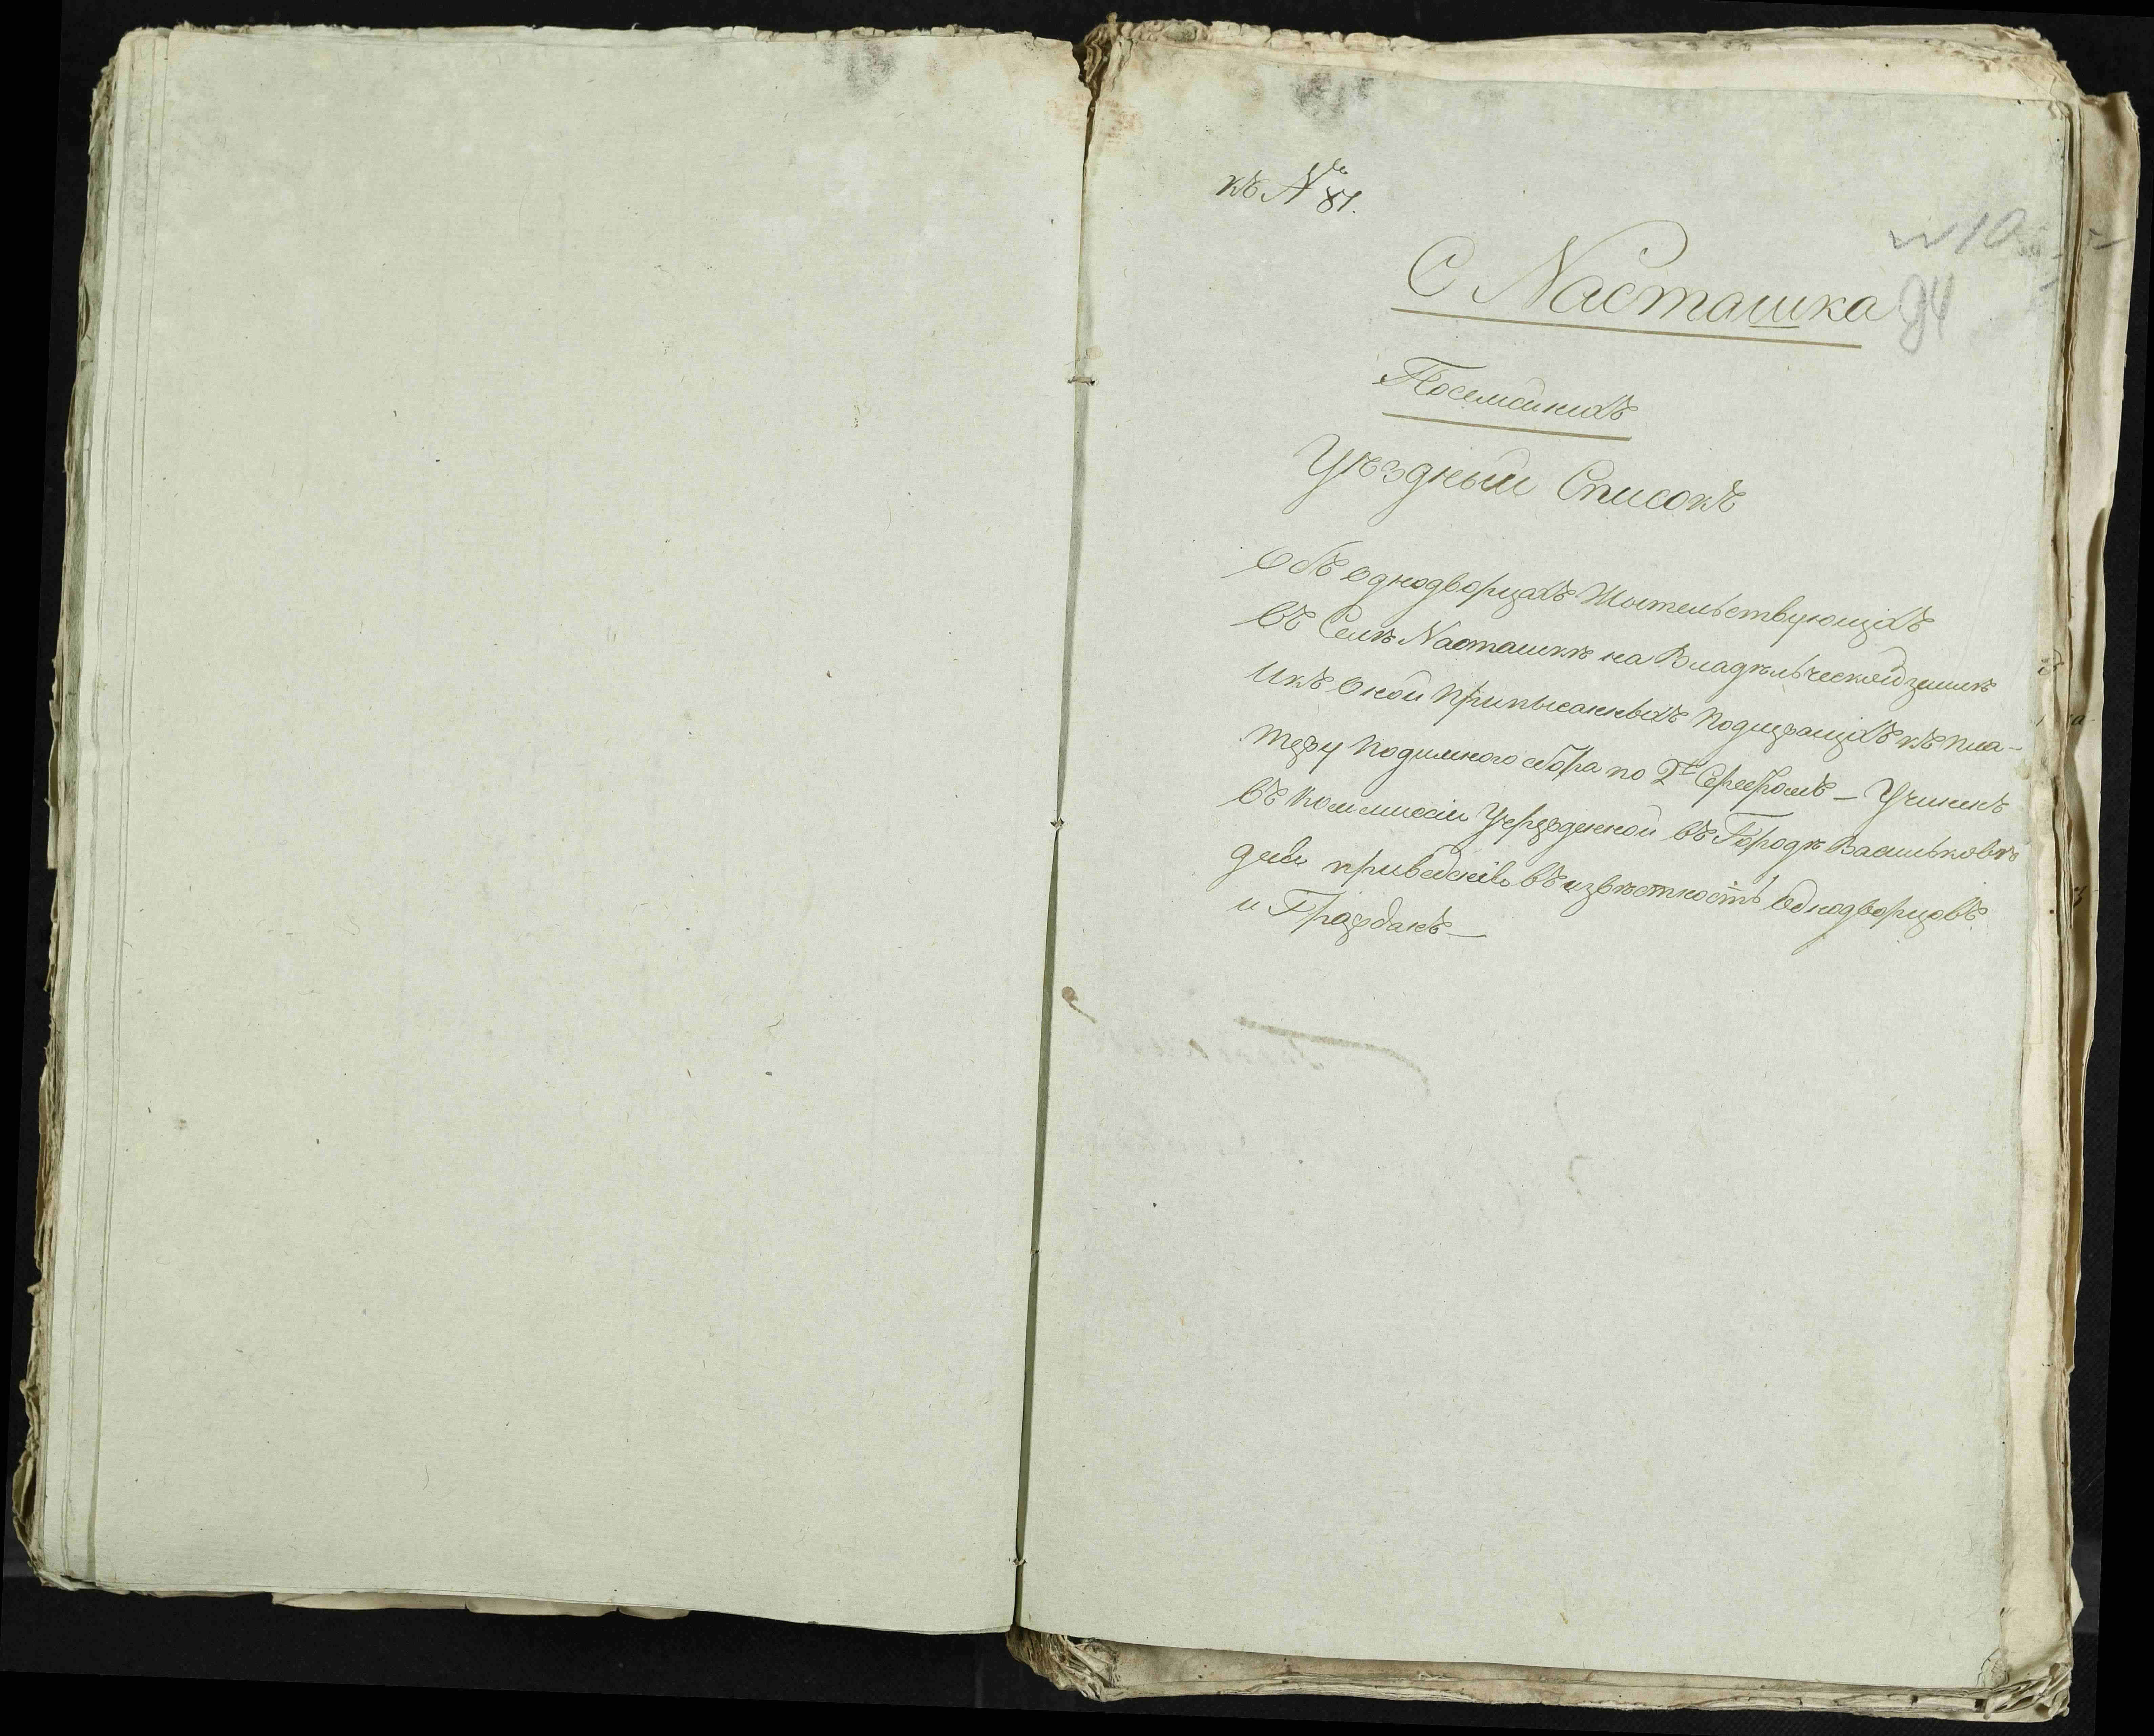 къ № 81.
С Nасташка
94
Посемейный
Уѣздный Списокъ
Объ однодворцахъ Жытельствующихъ
въ Селѣ Nасташкѣ на Владѣльческой землѣ
и къ Оной Приписанныхъ Подлежащихъ къ пла-
тежу Подымного сбора по Серебромъ — Учинен
въ Коммиссіи Учрежденной въ Городѣ Васильковѣ
для приведенія въ извѣстность Однодворцовъ
и Граждан —